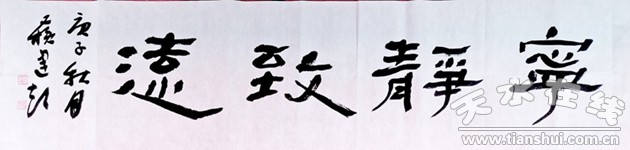 寧靜致遠
庚子秋月
蘇建彭
天水在线
www.tianshui.com.cn